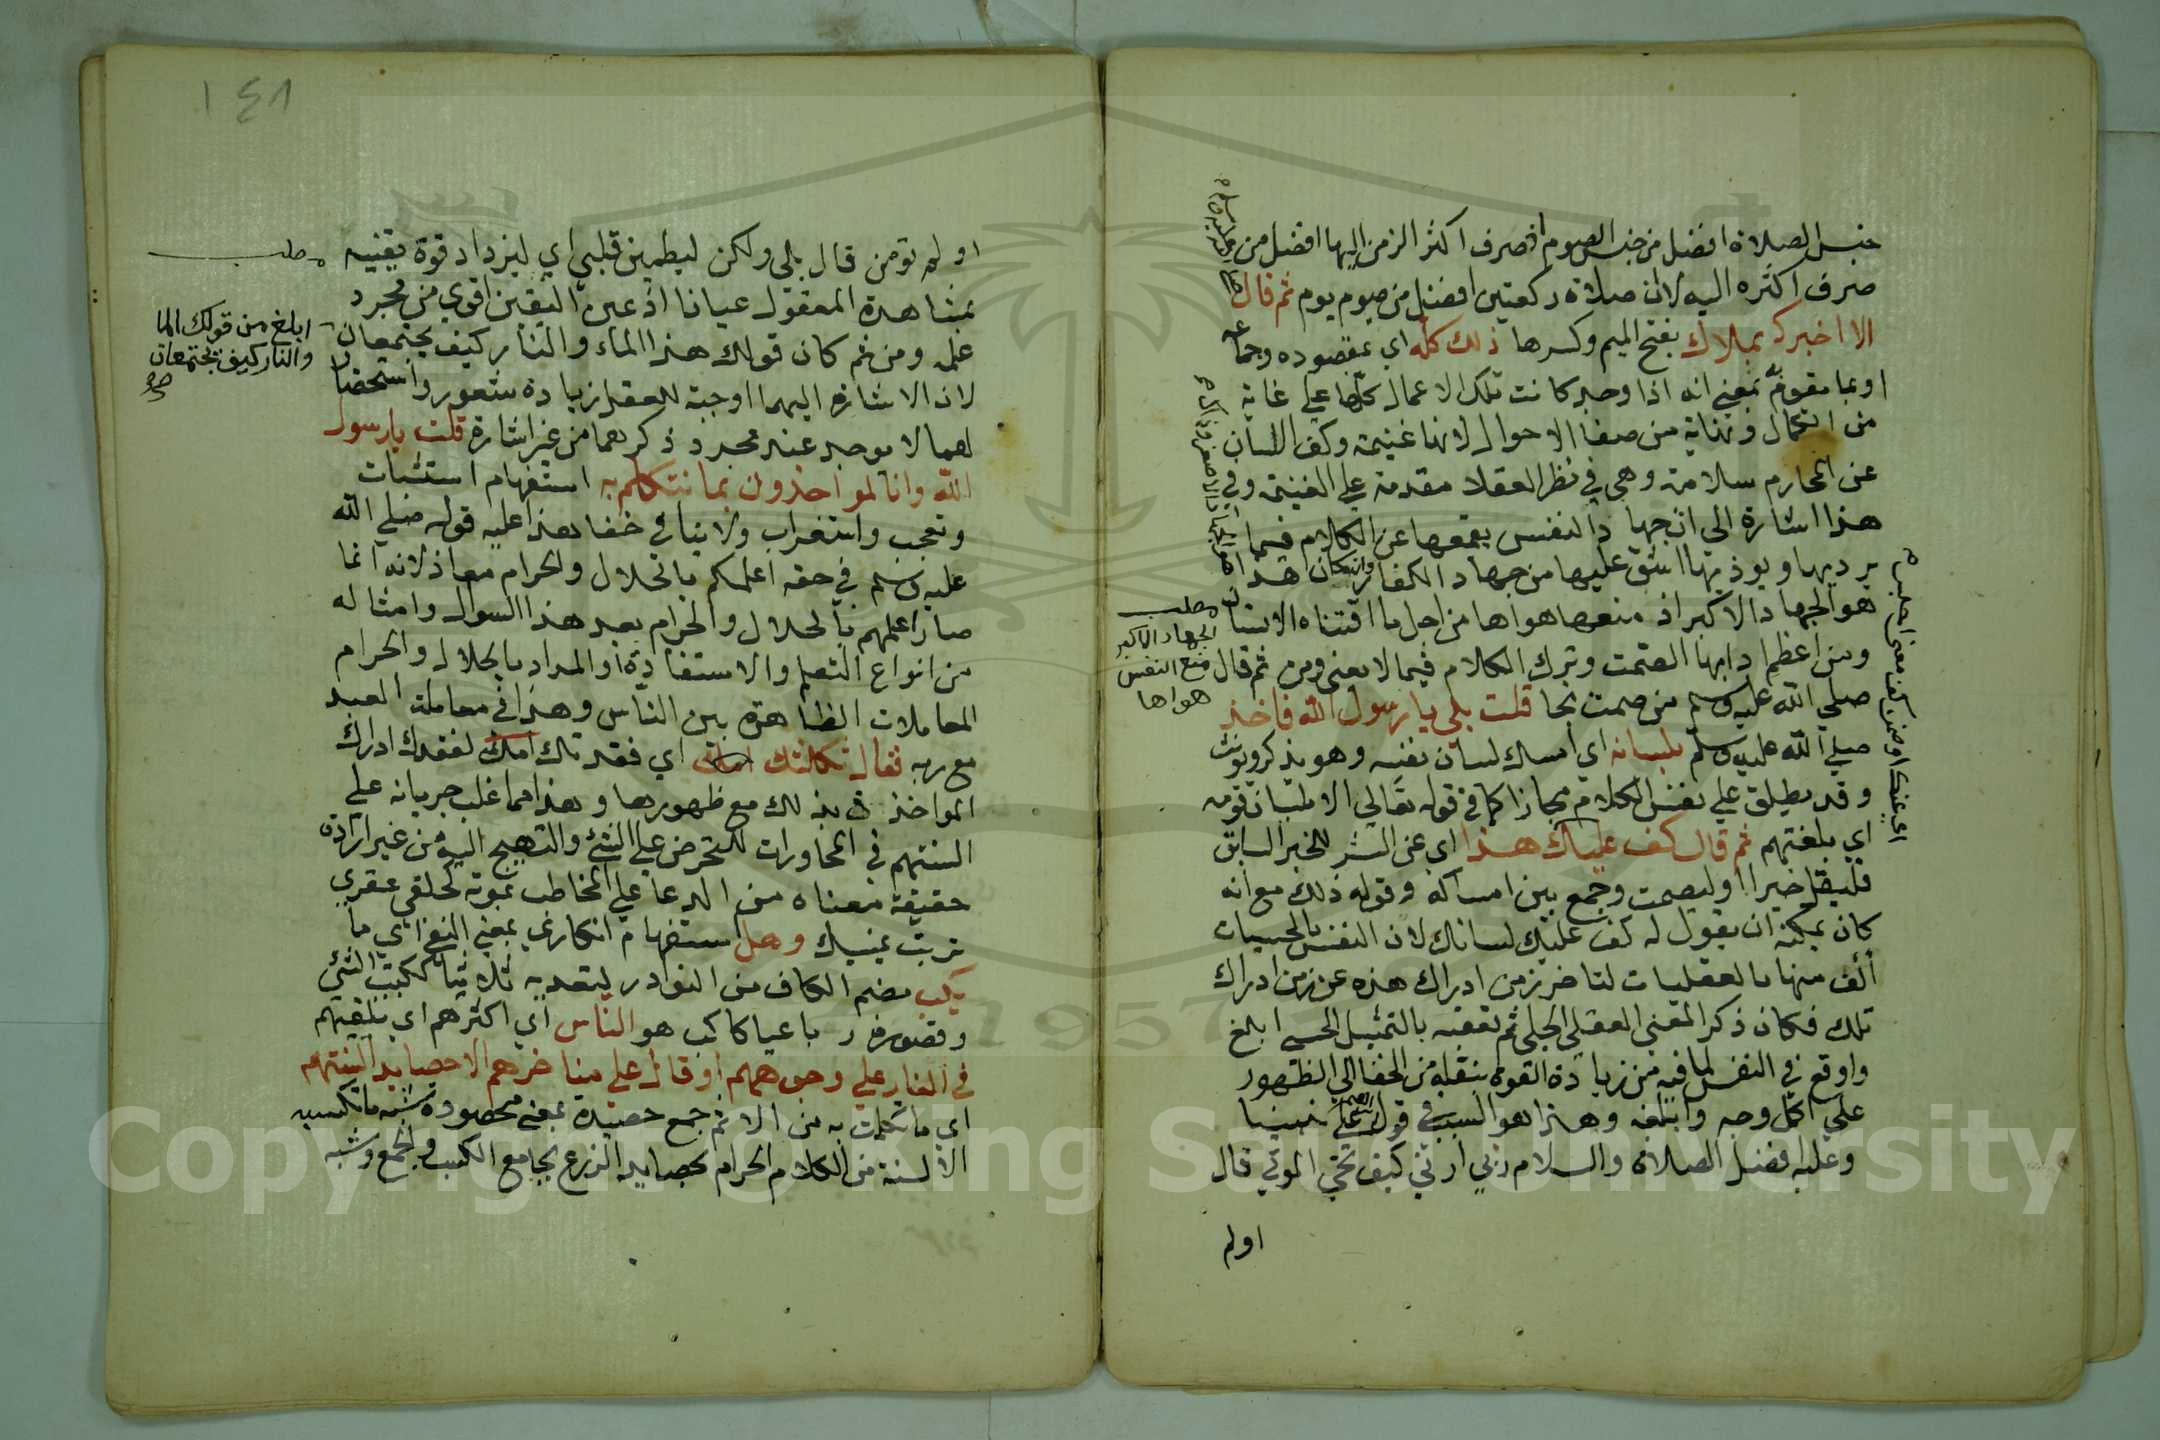 جنس الصلاة افضل من جنس الصوم اذ صرف اكثر الزمن اليها افضل من
صرف اكثره اليه لان صلاة ركعتين افضل من صوم يوم ثم قال
الا اخبرك بملاك بفتح الميم وكسرها ذلك كله اي بمقصوده وجماعه
او بما يقوم به بمعنى انه اذا وجد كانت تلك الاعمال كلها على غاية
من الكمال ونهاية من صفا الاحوال لانها غنيمة وكف اللسان
عن المحارم سلامة وهي في نظر العقلا مقدمة على الغنيمة وفي
هذا اشارة الى ان جهاد النفس بقمعها عن الكلام فيما
يرديها ويوذيها اشق عليها من جهاد الكفار وان كان هذا
هو الجهاد الاكبر اذ منعها هواها من اجل ما اقتناه الانسان
ومن اعظم ادابها الصمت وترك الكلام فيما لا يعني ومن ثم قال
صلى الله عليه وسلم من صمت نجا قلت بلى يا رسول الله فاخذ
صلى الله عليه وسلم بلسانه اي امسك لسان نفسه وهو يذكر ويونث
وقد يطلق على نفس الكلام مجازا كما في قوله تعالى الا بلسان قومه
اي بلغتهم ثم قال كف عليك هذا اي عن الشر للخبر السابق
فليقل خيرا او ليصمت وجمع بين امساكه وقوله ذلك مع انه
كان يمكنه ان يقول له كف عليك لسانك لان النفس بالحسيات
آلف منها بالعقليات لتاخر زمن ادراك هذه عن زمن ادراك
تلك فكان ذكر المعنى العقلي الجلي ثم تعقبه بالتمثيل الحسي ابلغ
واوقع في النفس لما فيه من زيادة القوة بنقله من الخفا الى الظهور
على اكمل وجه وابلغه وهذا هو السبب في قول ابراهيم على نبينا
وعليه افضل الصلاة والسلام رب ارني كيف تحي الموتى قال
اولم
مطلب
الجهاد الاكبر
منع النفس
هواها
اي عنك او ضمن كف معنى احبس
١٤٨
اولم تومن قال بلى ولكن ليطمين قلبي اي ليزداد قوة يقينه
بمشاهدة المعقول عيانا اذ عين اليقين اقوى من مجرد
علمه ومن ثم كان قولك هذا الماء والنار كيف يجتمعان
لان الاشارة اليهما اوجبت للعقل زيادة شعور واستحضار
لهما لا يوجد عند مجرد ذكرهما من غير اشارة قلت يا رسول
الله وانا لمواخذون بما نتكلم به استفهام استثبات
وتعجب واستغراب ولا ينافي خفا هذا عليه قوله صلى الله
عليه وسلم في حقه اعلمكم بالحلال والحرام معاذ لانه انما
صار اعلمهم بالحلال والحرام بعد هذا السوال وامثاله
من انواع التعلم والاستفادة او المراد بالحلال والحرام
المعاملات الظاهرة بين الناس وهذا في معاملة العبد
مع ربه فقال ثكلتك امك اي فقدتك امك لفقدك ادراك
المواخذة بذلك مع ظهورها وهذا مما غلب جريانه على
السنتهم في المحاورات للتحرض على الشئ والتهييج اليه من غير ارادة
حقيقة معناه من الدعا على المخاطب بموته كحلقى عقرى
تربت يمينك وهل استفهام انكاري بمعنى النفي اي ما
يكب بضم الكاف من النوادر لتعديه ثلاثيا ككببت الشئ
وقصوره رباعيا كاكب هو الناس اي اكثرهم اي يلقيهم
في النار على وجوههم او قال على مناخرهم الا حصايد السنتهم
اي ما تكلمت به من الاثم جمع حصيدة بمعنى محصودة شبه ما تكسبه
الالسنة من الكلام الحرام بحصايد الزرع بجامع الكسب والجمع وشبه
مطلب
ابلغ من قولك الما
والنار كيف يجتمعان
صح
Copyright © King Saud University
1957